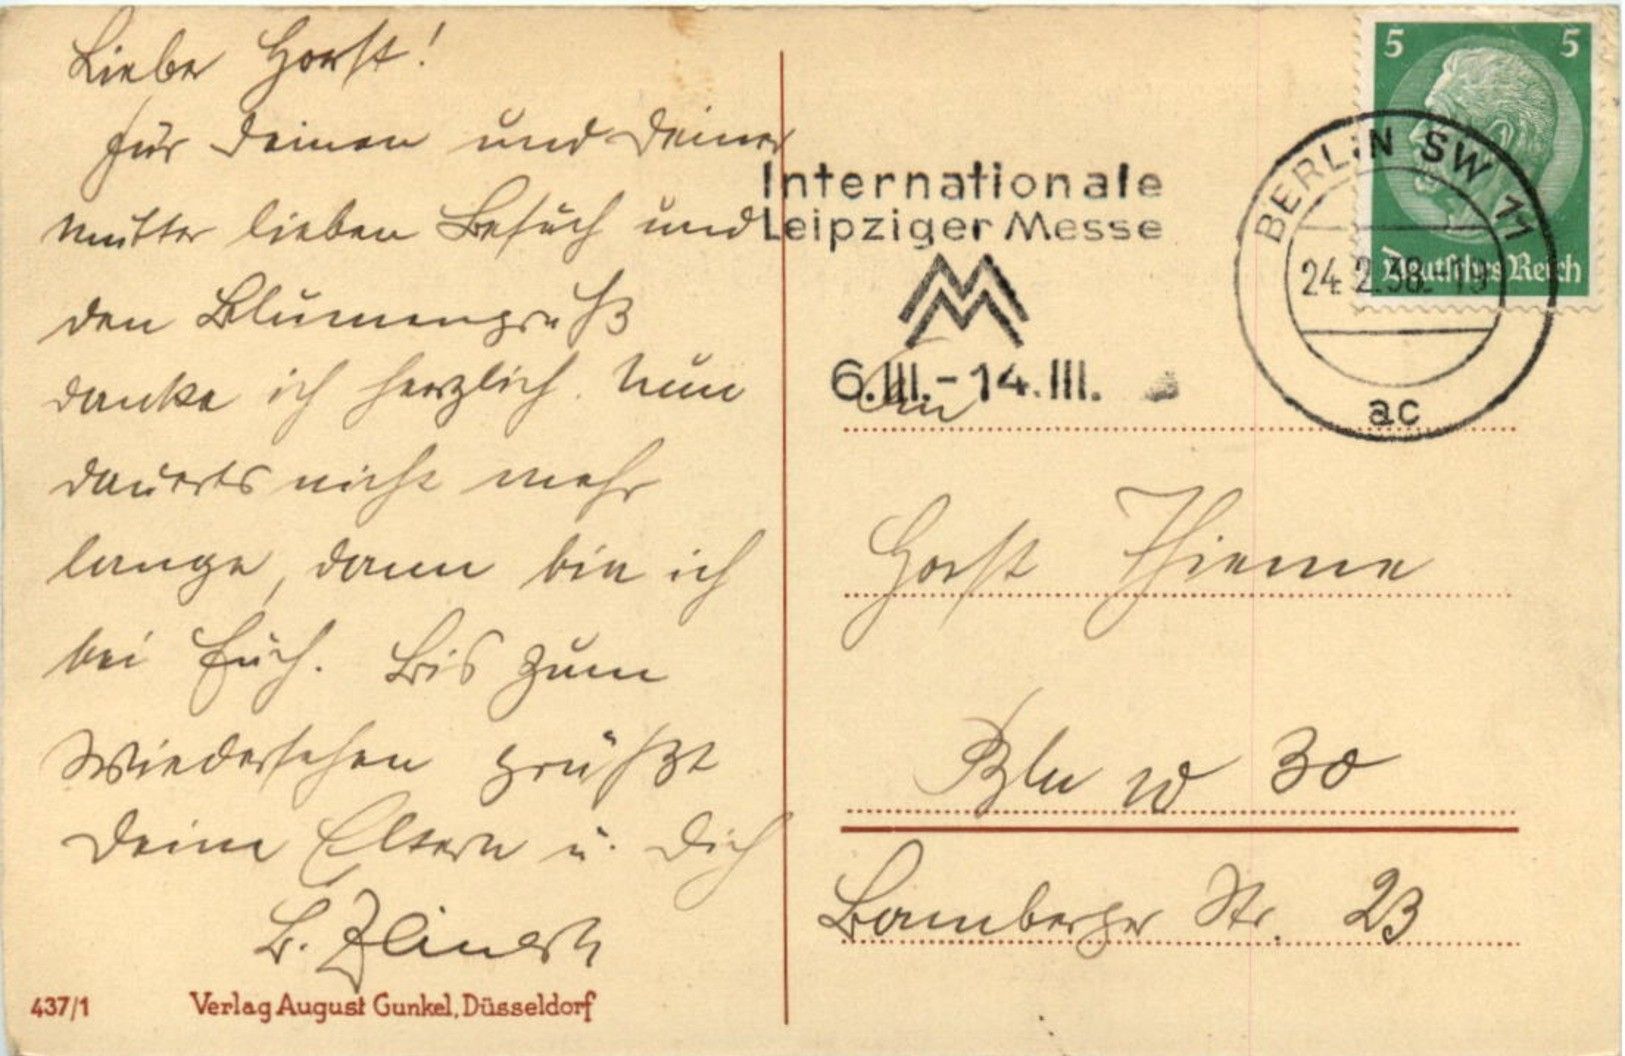 Lieber Horst!
Für Deinen und Deiner
Mutter lieben Besuch und
den Blumengruß
danke ich herzlich. Nun
dauerts nicht mehr
lange, dann bin ich
bei Euch. Bis zum
Wiedersehen grüßt
Deine Eltern u. Dich
B.
437/1 Verlag August Gunkel, Düsseldorf
Internationale
Leipziger Messe
6.III.-14.III.
5 5
Deutsches Reich
BERLIN SW 11
24.2.38.-19
ac
An
Horst Thieme
Bln W 30
Bamberger Str. 23